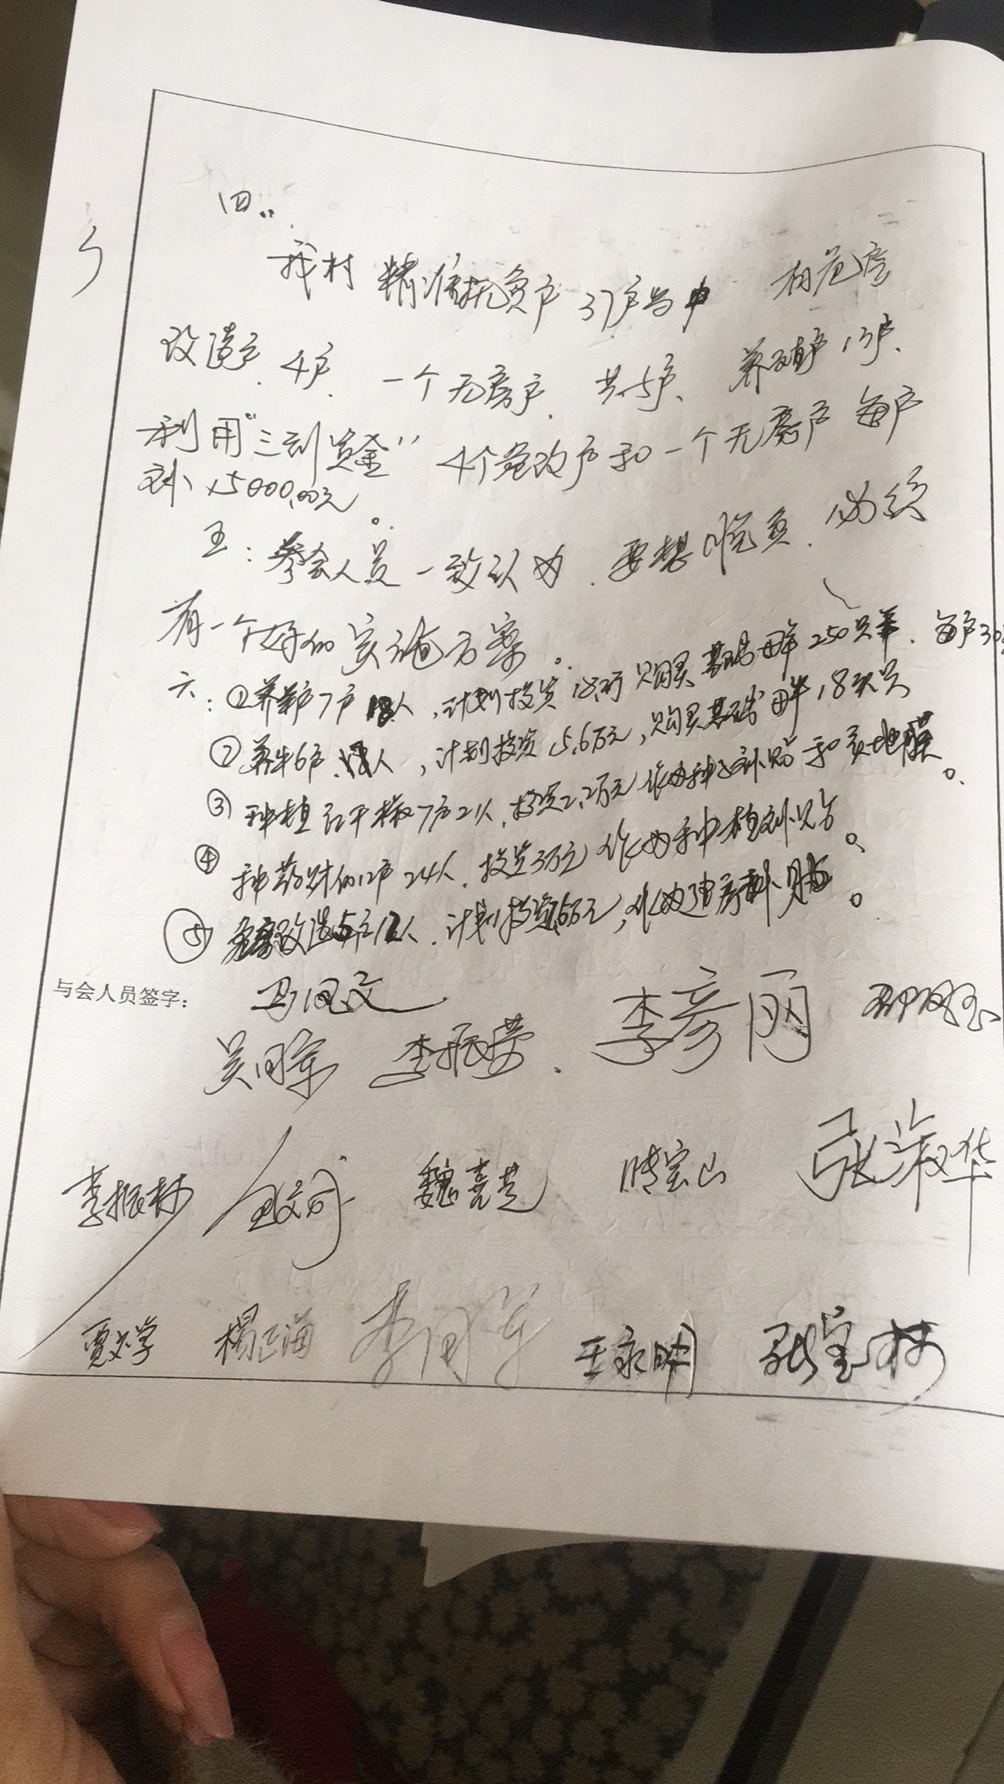 四、
我村精准扶贫户37户当中 有危房
改造户4户、一个无房户、共5户、养殖户13户、
利用"三到资金"4个危改户和一个无房户每户
补15000.00元。
五：参会人员一致认为、要想脱贫、必须
有一个好的实施方案。
六：①养羊户7户18人，计划投资18万购买基础母羊250只羊、每户
②养牛6户 人，计划投资15.6万元，购买基础母牛18头
③种植红干椒7户21人、投资2.2万元作为种子补贴和买地膜。
④种药材的12户24人、投资3万元作为种植补贴。
⑤危房改造5户12人、计划投资 万元，作为建房补贴。
与会人员签字：
吴国军 李振荣 李彦丽
李振林 魏喜芝 张淑华
贾文学 杨正海 李国军 王永明 张宝林